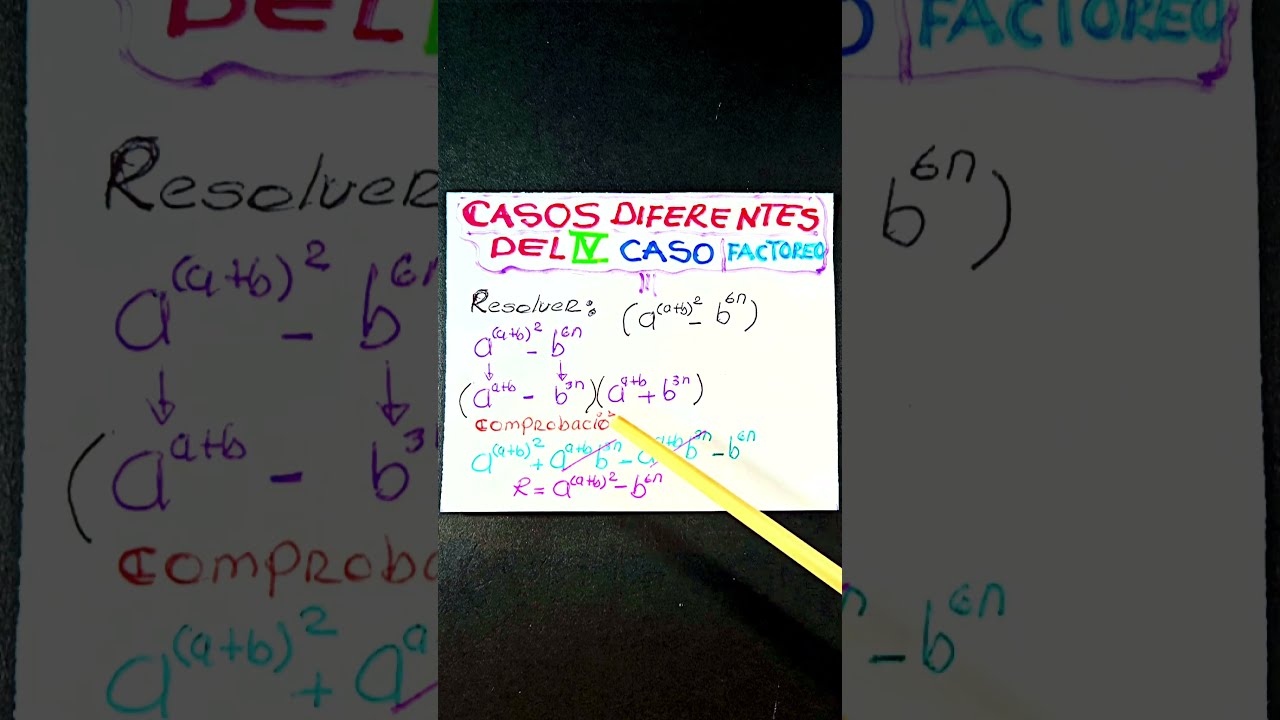 CASOS DIFERENTES
DEL IV CASO FACTOREO
Resolver: (a^(a+b)² - b^6n)
a^(a+b)² - b^6n
↓ ↓
(a^a+b - b^3n)(a^a+b + b^3n)
Comprobació
a^(a+b)² + a^a+b b^3n - a^a+b b^3n - b^6n
R = a^(a+b)² - b^6n